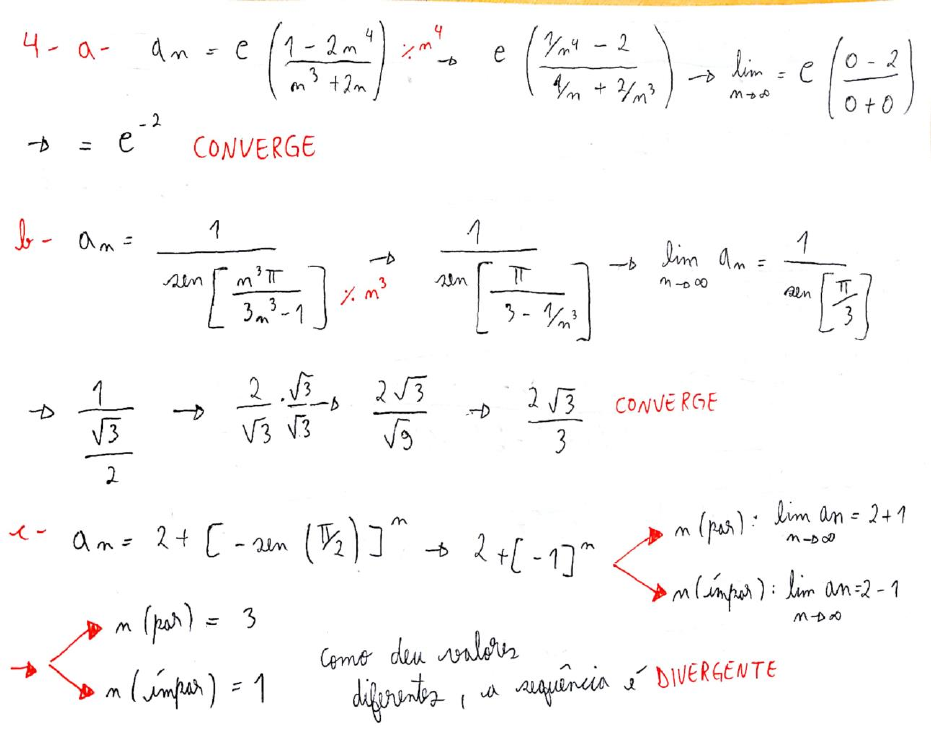 4- a- an = e ((1 - 2n^4)/(n^3 + 2n)) ⁒ n^4 → e ((1/n^4 - 2)/(1/n + 2/n^3)) → lim n→∞ = e ((0 - 2)/(0 + 0))
→ = e^-2 CONVERGE
b- an = 1/(sen [n^3π/(3n^3 - 1)]) ⁒ n^3 → 1/(sen [π/(3 - 1/n^3)]) → lim n→∞ an = 1/(sen [π/3])
→ 1/(√3/2) → 2/√3 · √3/√3 → 2√3/√9 → 2√3/3 CONVERGE
c- an = 2 + [- sen (π/2)]^n → 2 + [-1]^n
n (par): lim n→∞ an = 2 + 1
n (ímpar): lim n→∞ an = 2 - 1
→ n (par) = 3
n (ímpar) = 1
como deu valores
diferentes, a sequência é DIVERGENTE